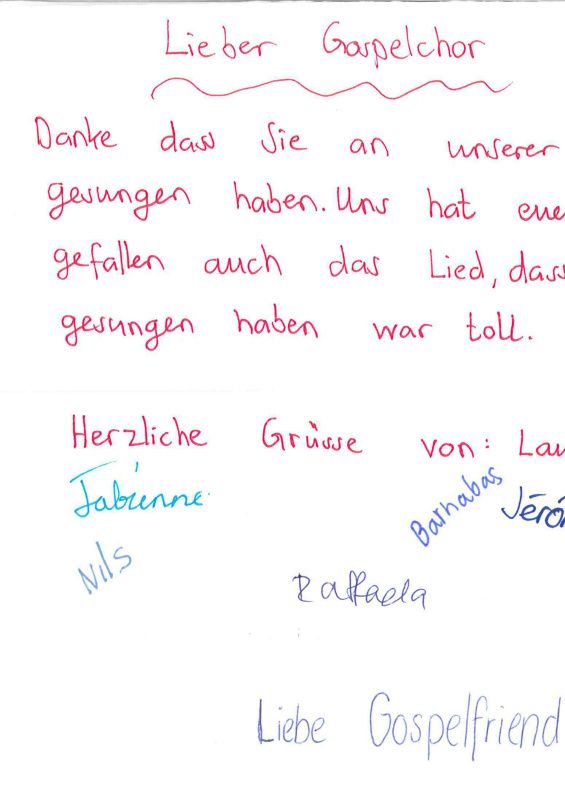 Lieber Gospelchor
Danke dass Sie an unserer
gesungen haben. Uns hat eue
gefallen auch das Lied, dass
gesungen haben war toll.
Herzliche Grüsse von: Lau
Fabienne
Barnabas Jéró
Nils
Raffaela
Liebe Gospelfriend